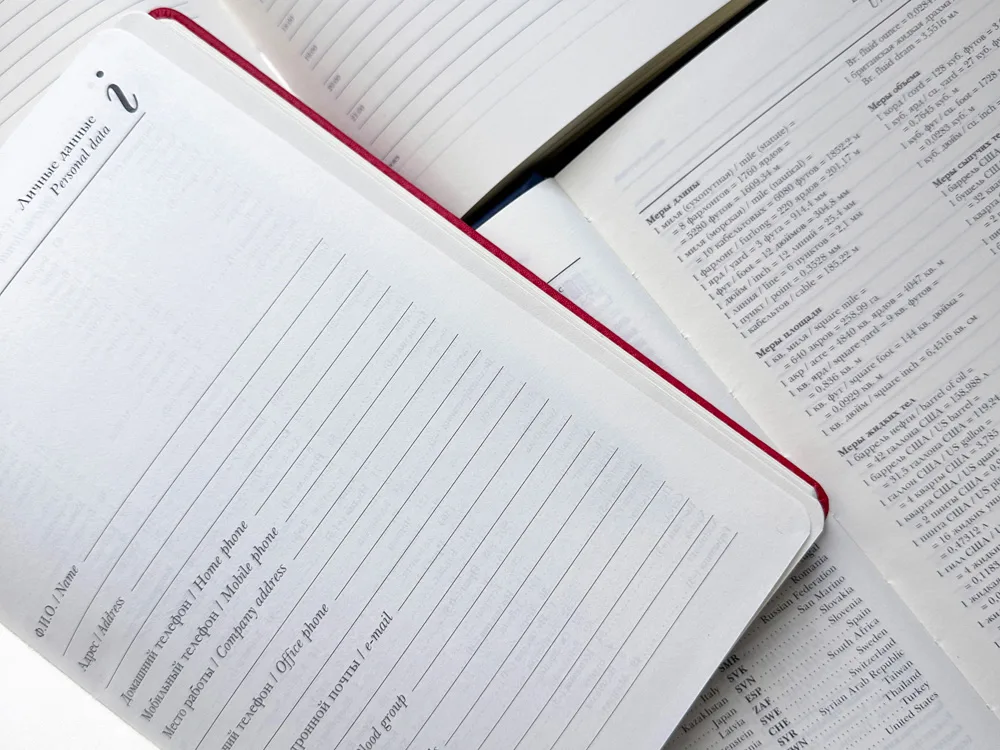 Личные данные
Personal data
i
Ф.И.О. / Name
Адрес / Address
Домашний телефон / Home phone
Мобильный телефон / Mobile phone
Место работы / Company address
телефон / Office phone
почты / e-mail
group
Br. fluid ounce =
1 британская жидкая драхма
Br. fluid dram = 3,5516 мл
Меры объема
1 корд / cord = 128 куб. футов =
1 куб. ярд / cu. yard = 27 куб.
= 0,7645 куб. м
1 куб. фут / cu. foot = 1728
= 0,0283 куб. м
1 куб. дюйм / cu. inch
Меры сыпучих
1 баррель США
1 бушель США
1 кварта
Меры длины
1 миля (сухопутная) / mile (statute) =
= 8 фарлонгов = 1760 ярдов =
= 5280 футов = 1609,34 м
1 миля (морская) / mile (nautical) =
= 10 кабельтовых = 6080 футов = 1852,2 м
1 фарлонг / furlong = 220 ярдов = 201,17 м
1 ярд / yard = 3 фута = 914,4 мм
1 фут / foot = 12 дюймов = 304,8 мм
1 дюйм / inch = 12 линий = 25,4 мм
1 линия / line = 6 пунктов = 2,1 мм
1 пункт / point = 0,3528 мм
1 кабельтов / cable = 185,22 м
Меры площади
1 кв. миля / square mile =
= 640 акров = 258,99 га
1 акр / acre = 4840 кв. ярдов = 4047 кв. м
1 кв. ярд / square yard = 9 кв. футов =
= 0,836 кв. м
1 кв. фут / square foot = 144 кв. дюйма =
= 0,0929 кв. м
1 кв. дюйм / square inch = 6,4516 кв. см
Меры жидких тел
1 баррель нефти / barrel of oil =
= 42 галлона США = 158,988 л
1 баррель США / US barrel =
= 31,5 галлона США =
1 галлон США / US gallon =
= 4 кварты США =
1 кварта США / US quart
= 2 пинты США =
1 пинта США / US
= 16 жидких
= 0,47312 л
1 гилл США /
= 4 жидких
Romania
Russian Federation
San Marino
SMR
Slovakia
SVK
Slovenia
SVN
Spain
ESP
South Africa
ZAF
Sweden
SWE
Switzerland
CHE
Syrian Arab Republic
SYR
Taiwan
Thailand
Turkey
United States
Italy
Japan
Kazakhstan
Latvia